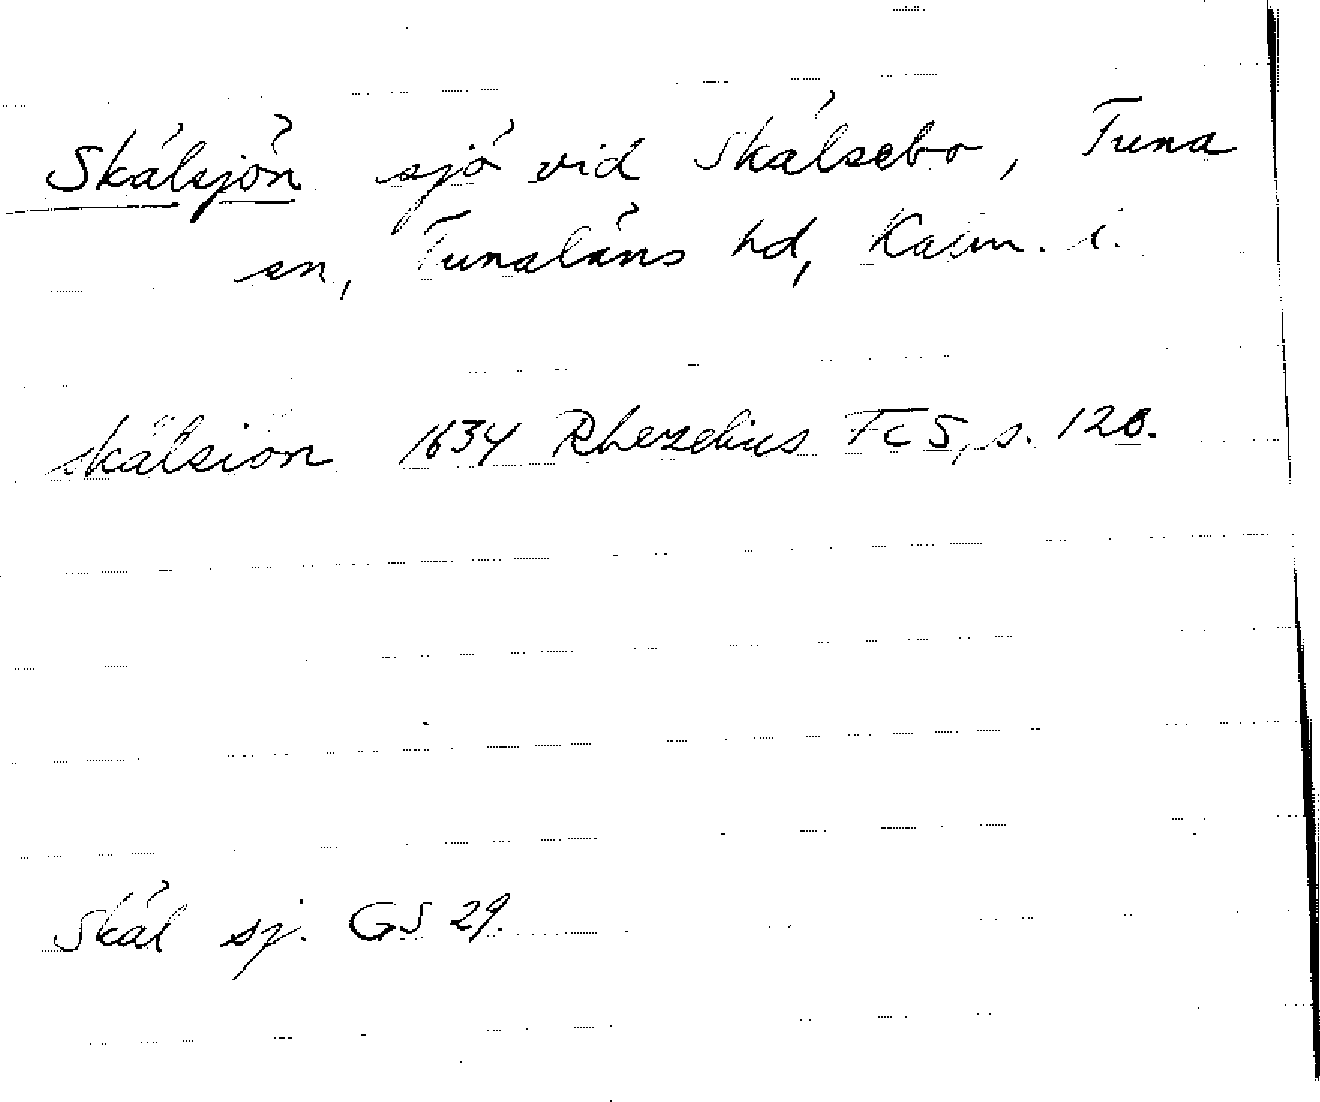 Skälsjön sjö vid Skälsebo, Tuna
sn, Tunaläns hd, Kalm. l.
skälsiön 1634 Rhezelius Fc5, s. 120.
Skäl sj. GS 29.